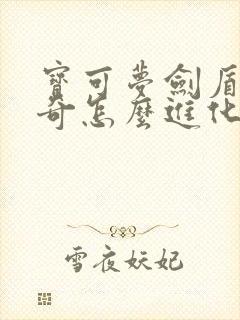 寶可夢劍盾
奇怎麼進化
雪夜妖妃